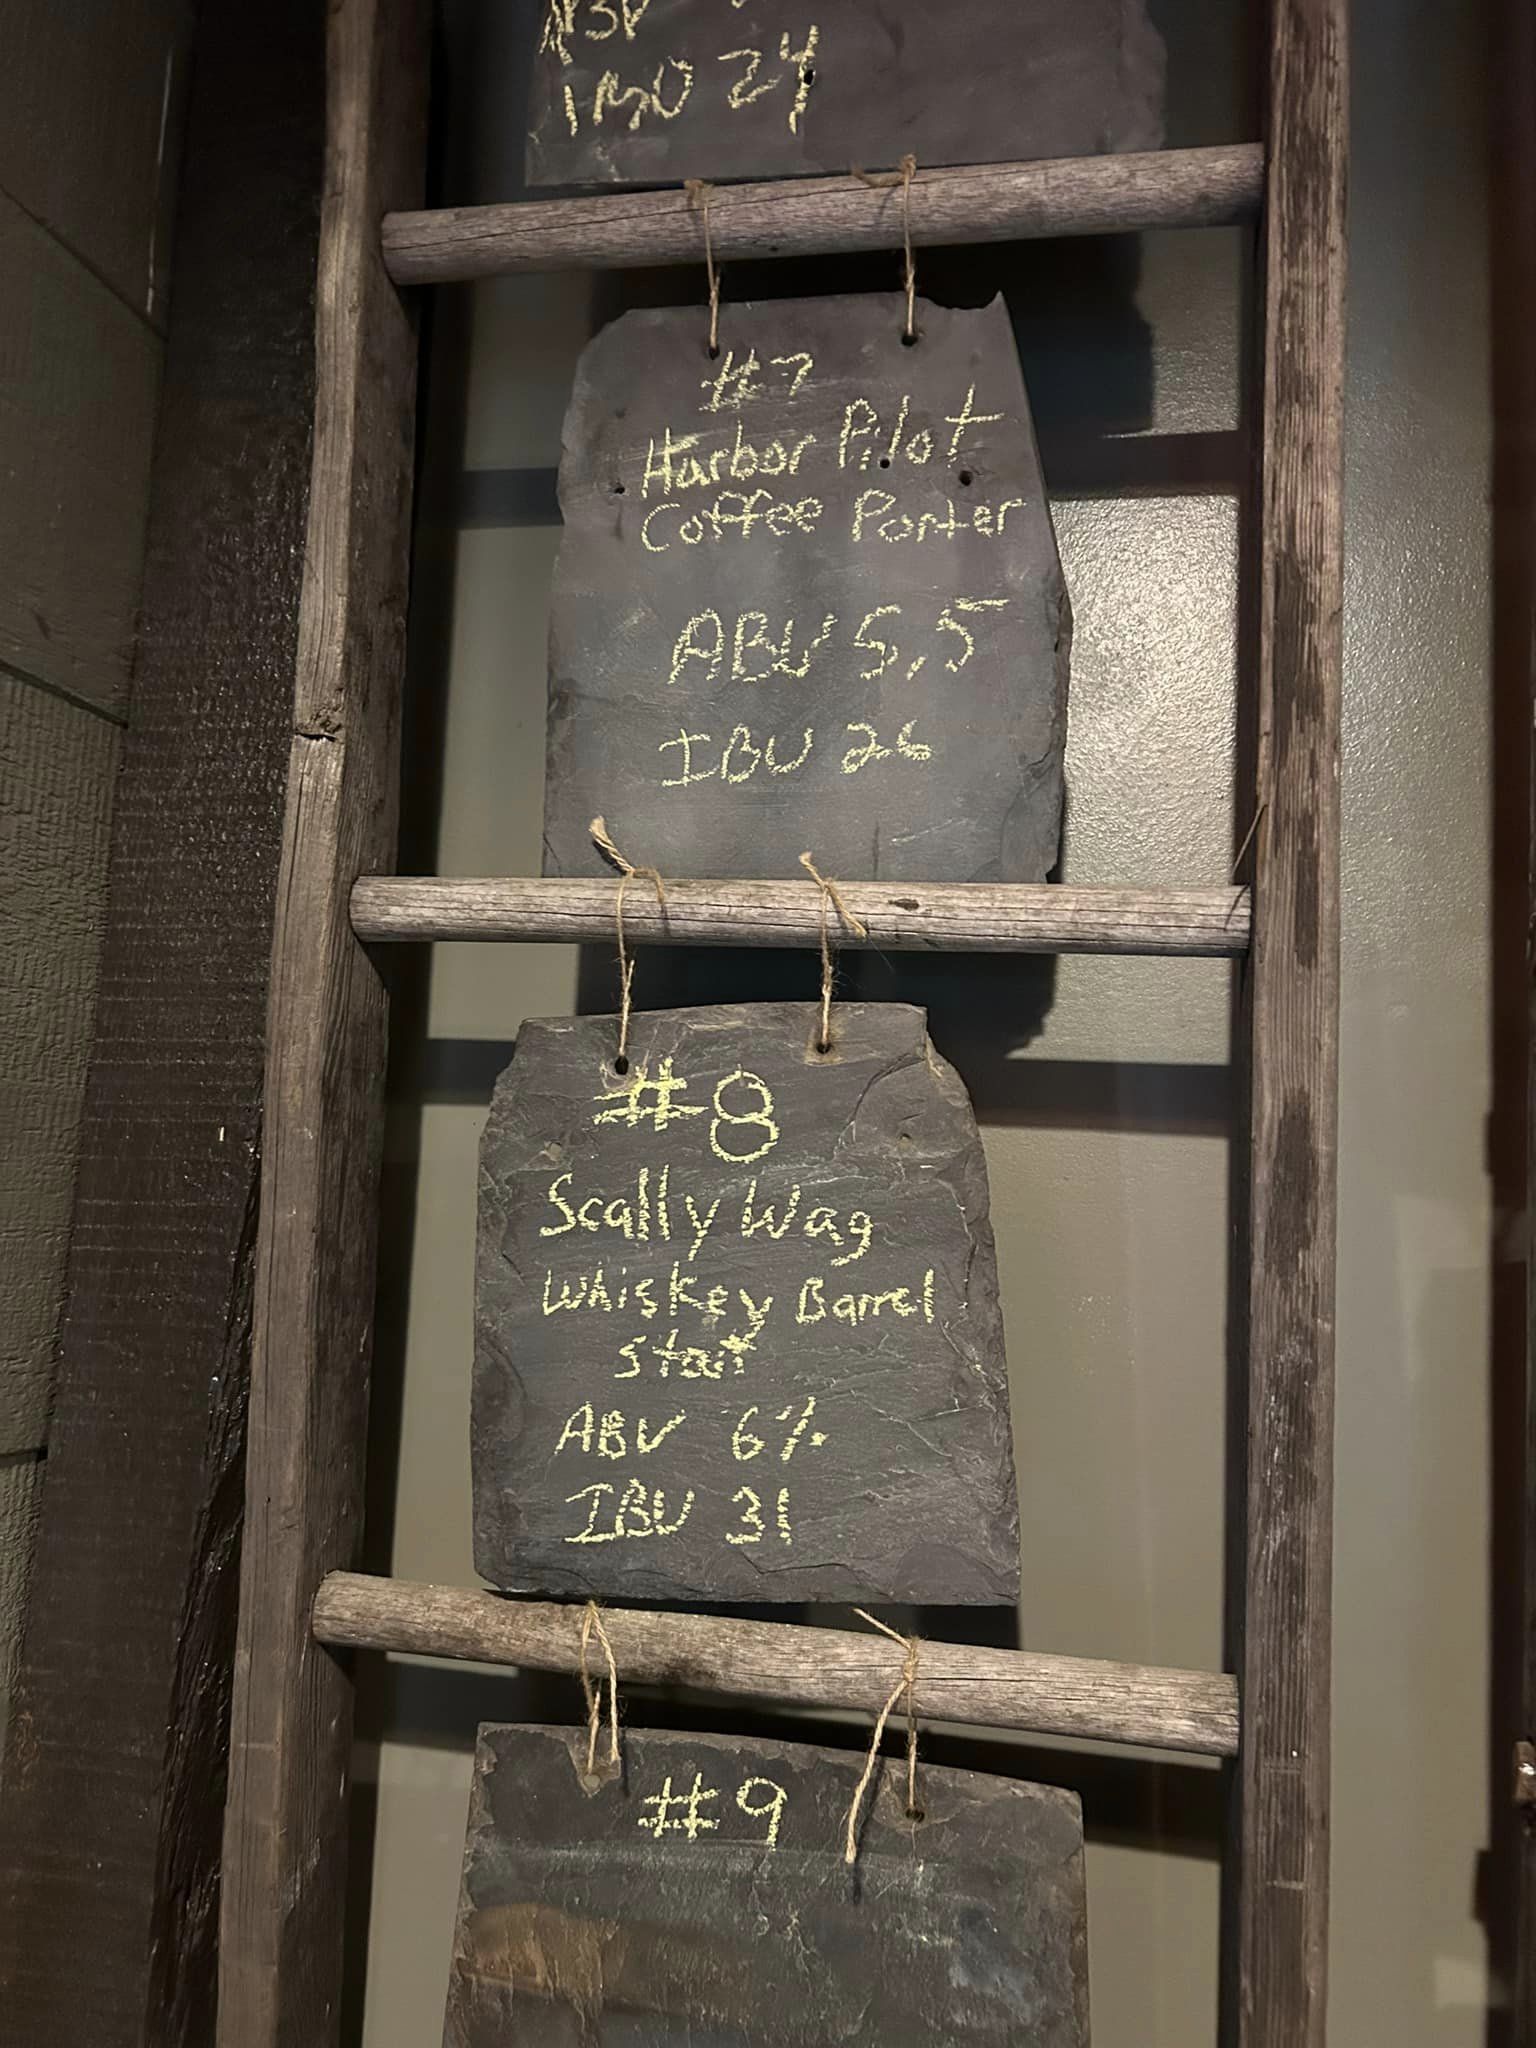 ABV
IBU 24
#7
Harbor Pilot
Coffee Porter
ABV 5.5
IBU 26
#8
Scally Wag
Whiskey Barrel
Stout
ABV 6%
IBU 31
#9